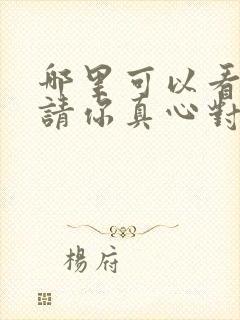 哪里可以看
請你真心對
楊府